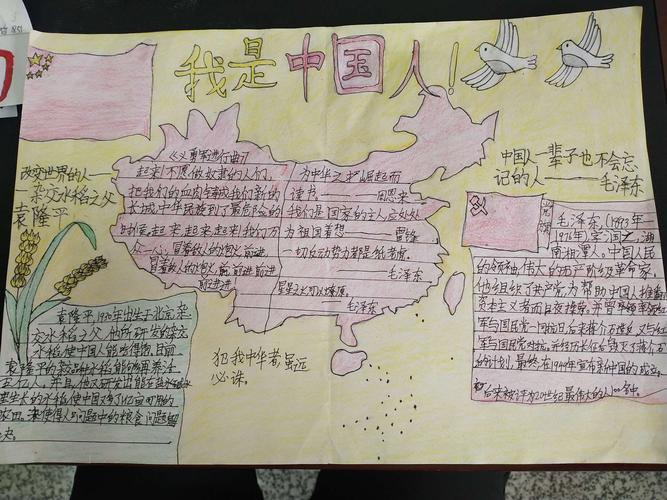 我是中国人!
改变世界的人——
杂交水稻之父
袁隆平
《义勇军进行曲》
起来!不愿做奴隶的人们,
把我们的血肉筑成我们新的
长城,中华民族到了最危险的
时候,起来起来起来!我们万
众一心,冒着敌人的炮火前进
冒着敌人的炮火前进前进
前进进
为中华之崛起而
读书。——周恩来
我们是国家的主人,应处处
为祖国着想——雷锋
一切反动势力都是纸老虎。
——毛泽东
星星之火可以燎原。
毛泽东
中国人一辈子也不会忘
记的人——毛泽东
毛泽东,(1893年—
1976年),字润之,湖
南湘潭人。中国人民
的领袖,伟大的无产阶级革命家,
他组织了共产党,为帮助中国人推翻
资本主义者而日夜操劳,并曾
军与国民党一同抗日,后来蒋介石
军与国民党
的计划,最终在1949年宣布新中国的成立。
后来被评为20世纪最伟大的人100
袁隆平,1930年出生于北京,杂
交水稻之父,他所研发的杂交
水稻,使中国人能吃得饱,目前
袁隆平的
五亿人,并且他又研发出能在
生长的水稻,使中国又多了亿亩可用的
农田,
决。
犯我中华者,虽远
必诛。